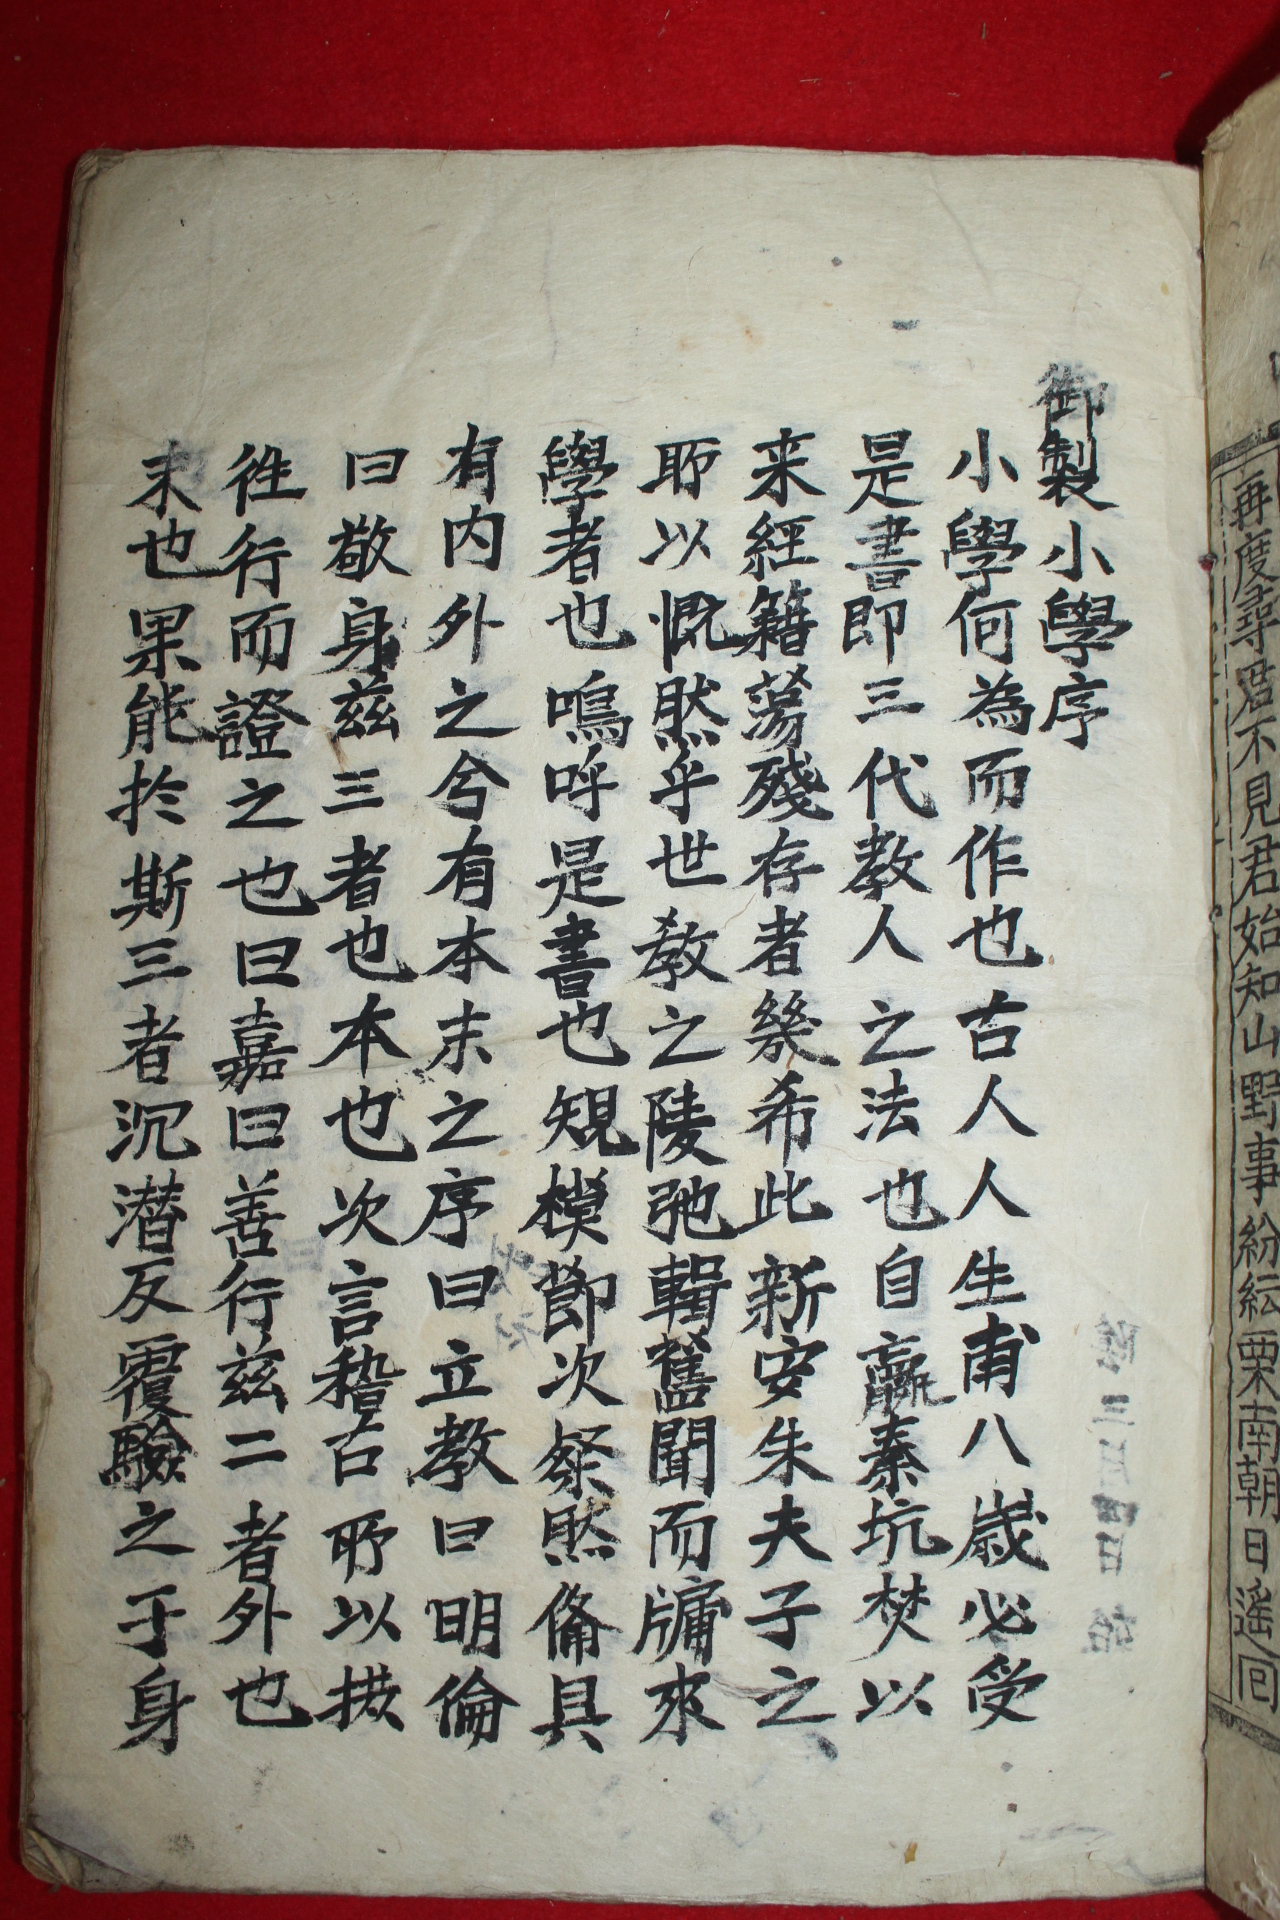 再度尋君不見君始知山野事紛紜栗南朝日遙回
御製小學序
小學何為而作也古人人生甫八歲必受
是書即三代教人之法也自嬴秦坑焚以
来經籍蕩殘存者幾希此新安朱夫子之
所以慨然乎世教之陵弛輯舊聞而牖來
學者也嗚呼是書也規模節次粲然備具
有内外之分有本末之序曰立教曰明倫
曰敬身茲三者也本也次言稽古所以摭
徃行而證之也曰嘉曰善行茲二者外也
末也果能於斯三者沉潜反覆驗之于身
三月四日